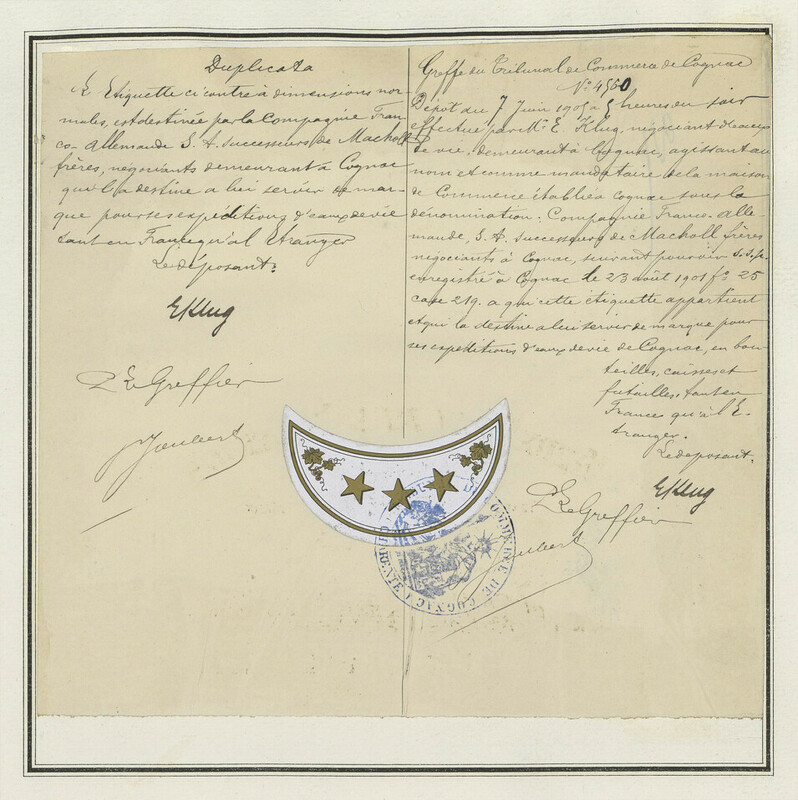 Duplicata
L'Etiquette ci contre à dimensions nor-
males, est destinée par la Compagnie Fran-
co-Allemande S. A. successeurs de Macholl
frères, négociants demeurant à Cognac
qui la destine a lui servir de mar-
que pour ses expéditions d'eaux de vie
tant en France qu'al Etranger
Le déposant:
EKlug
Le Greffier
Joubert
Greffe du Tribunal de Commerce de Cognac
No 4560
Dépôt du 7 Juin 1905 a 5 heures du soir
effectué par Mr E. Klug, négociant d'eaux
de vie. demeurant à Cognac, agissant au
nom et comme mandataire de la maison
de Commerce établie a cognac sous la
dénomination: Compagnie Franco-Alle-
mande, S. A. successeurs de Macholl frères
négociants à Cognac, suivant pouvoir s.s.p.
enregistré à Cognac le 23 août 1901 fo 25
case 219. a qui cette étiquette appartient
et qui la destine a lui servir de marque pour
ses expéditions d'eaux de vie de Cognac, en bou-
teilles, caisses et
futailles, tant en
France qu'à l'E-
tranger.
Le déposant.
EKlug
Le Greffier
Joubert
COMMERCE DE COGNAC CHARENTE